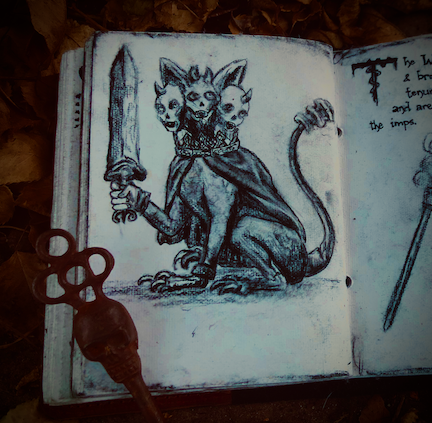 The W
& br
tenu
and are
the imps.